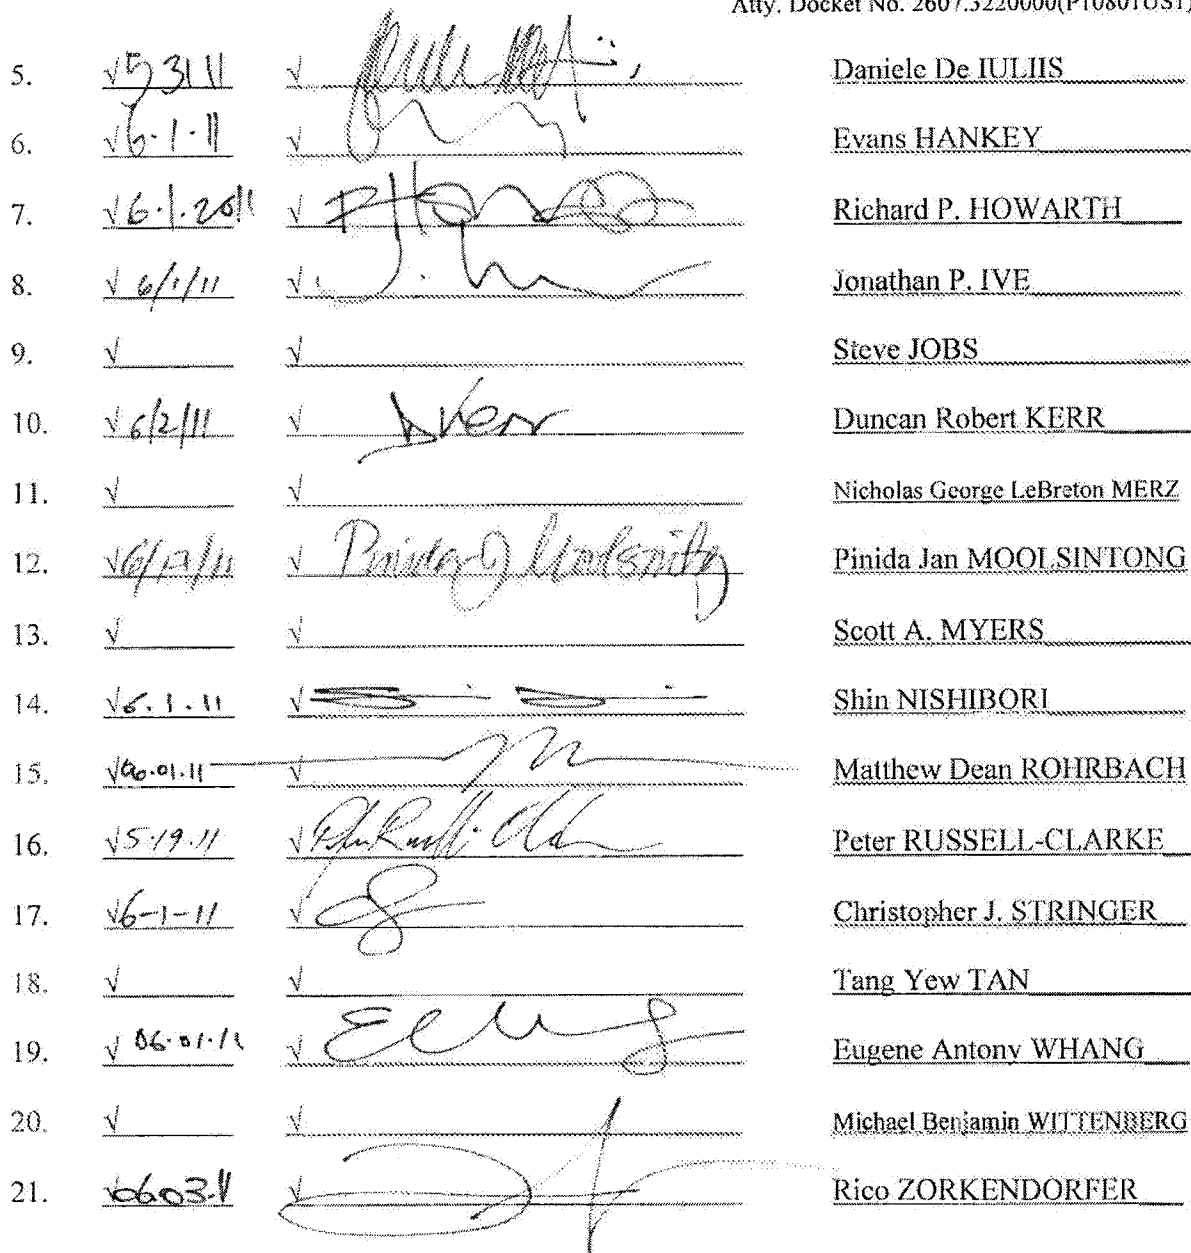 Atty. Docket No. 2607.3220000(P10801US1)
5. √ 5 31 11 √ Daniele De IULIIS
6. √ 6·1·11 √ Evans HANKEY
7. √ 6·1·2011 √ Richard P. HOWARTH
8. √ 6/1/11 √ Jonathan P. IVE
9. √ √ Steve JOBS
10. √ 6/2/11 √ DKerr Duncan Robert KERR
11. √ √ Nicholas George LeBreton MERZ
12. √ √ Pinida J Moolsintong Pinida Jan MOOLSINTONG
13. √ √ Scott A. MYERS
14. √ 6.1.11 √ Shin NISHIBORI
15. √ 06.01.11 √ Matthew Dean ROHRBACH
16. √ 5·19·11 √ Peter RUSSELL-CLARKE
17. √ 6-1-11 √ Christopher J. STRINGER
18. √ √ Tang Yew TAN
19. √ 06·01·11 √ Eugene Antony WHANG
20. √ √ Michael Benjamin WITTENBERG
21. √ 06.03.11 √ Rico ZORKENDORFER